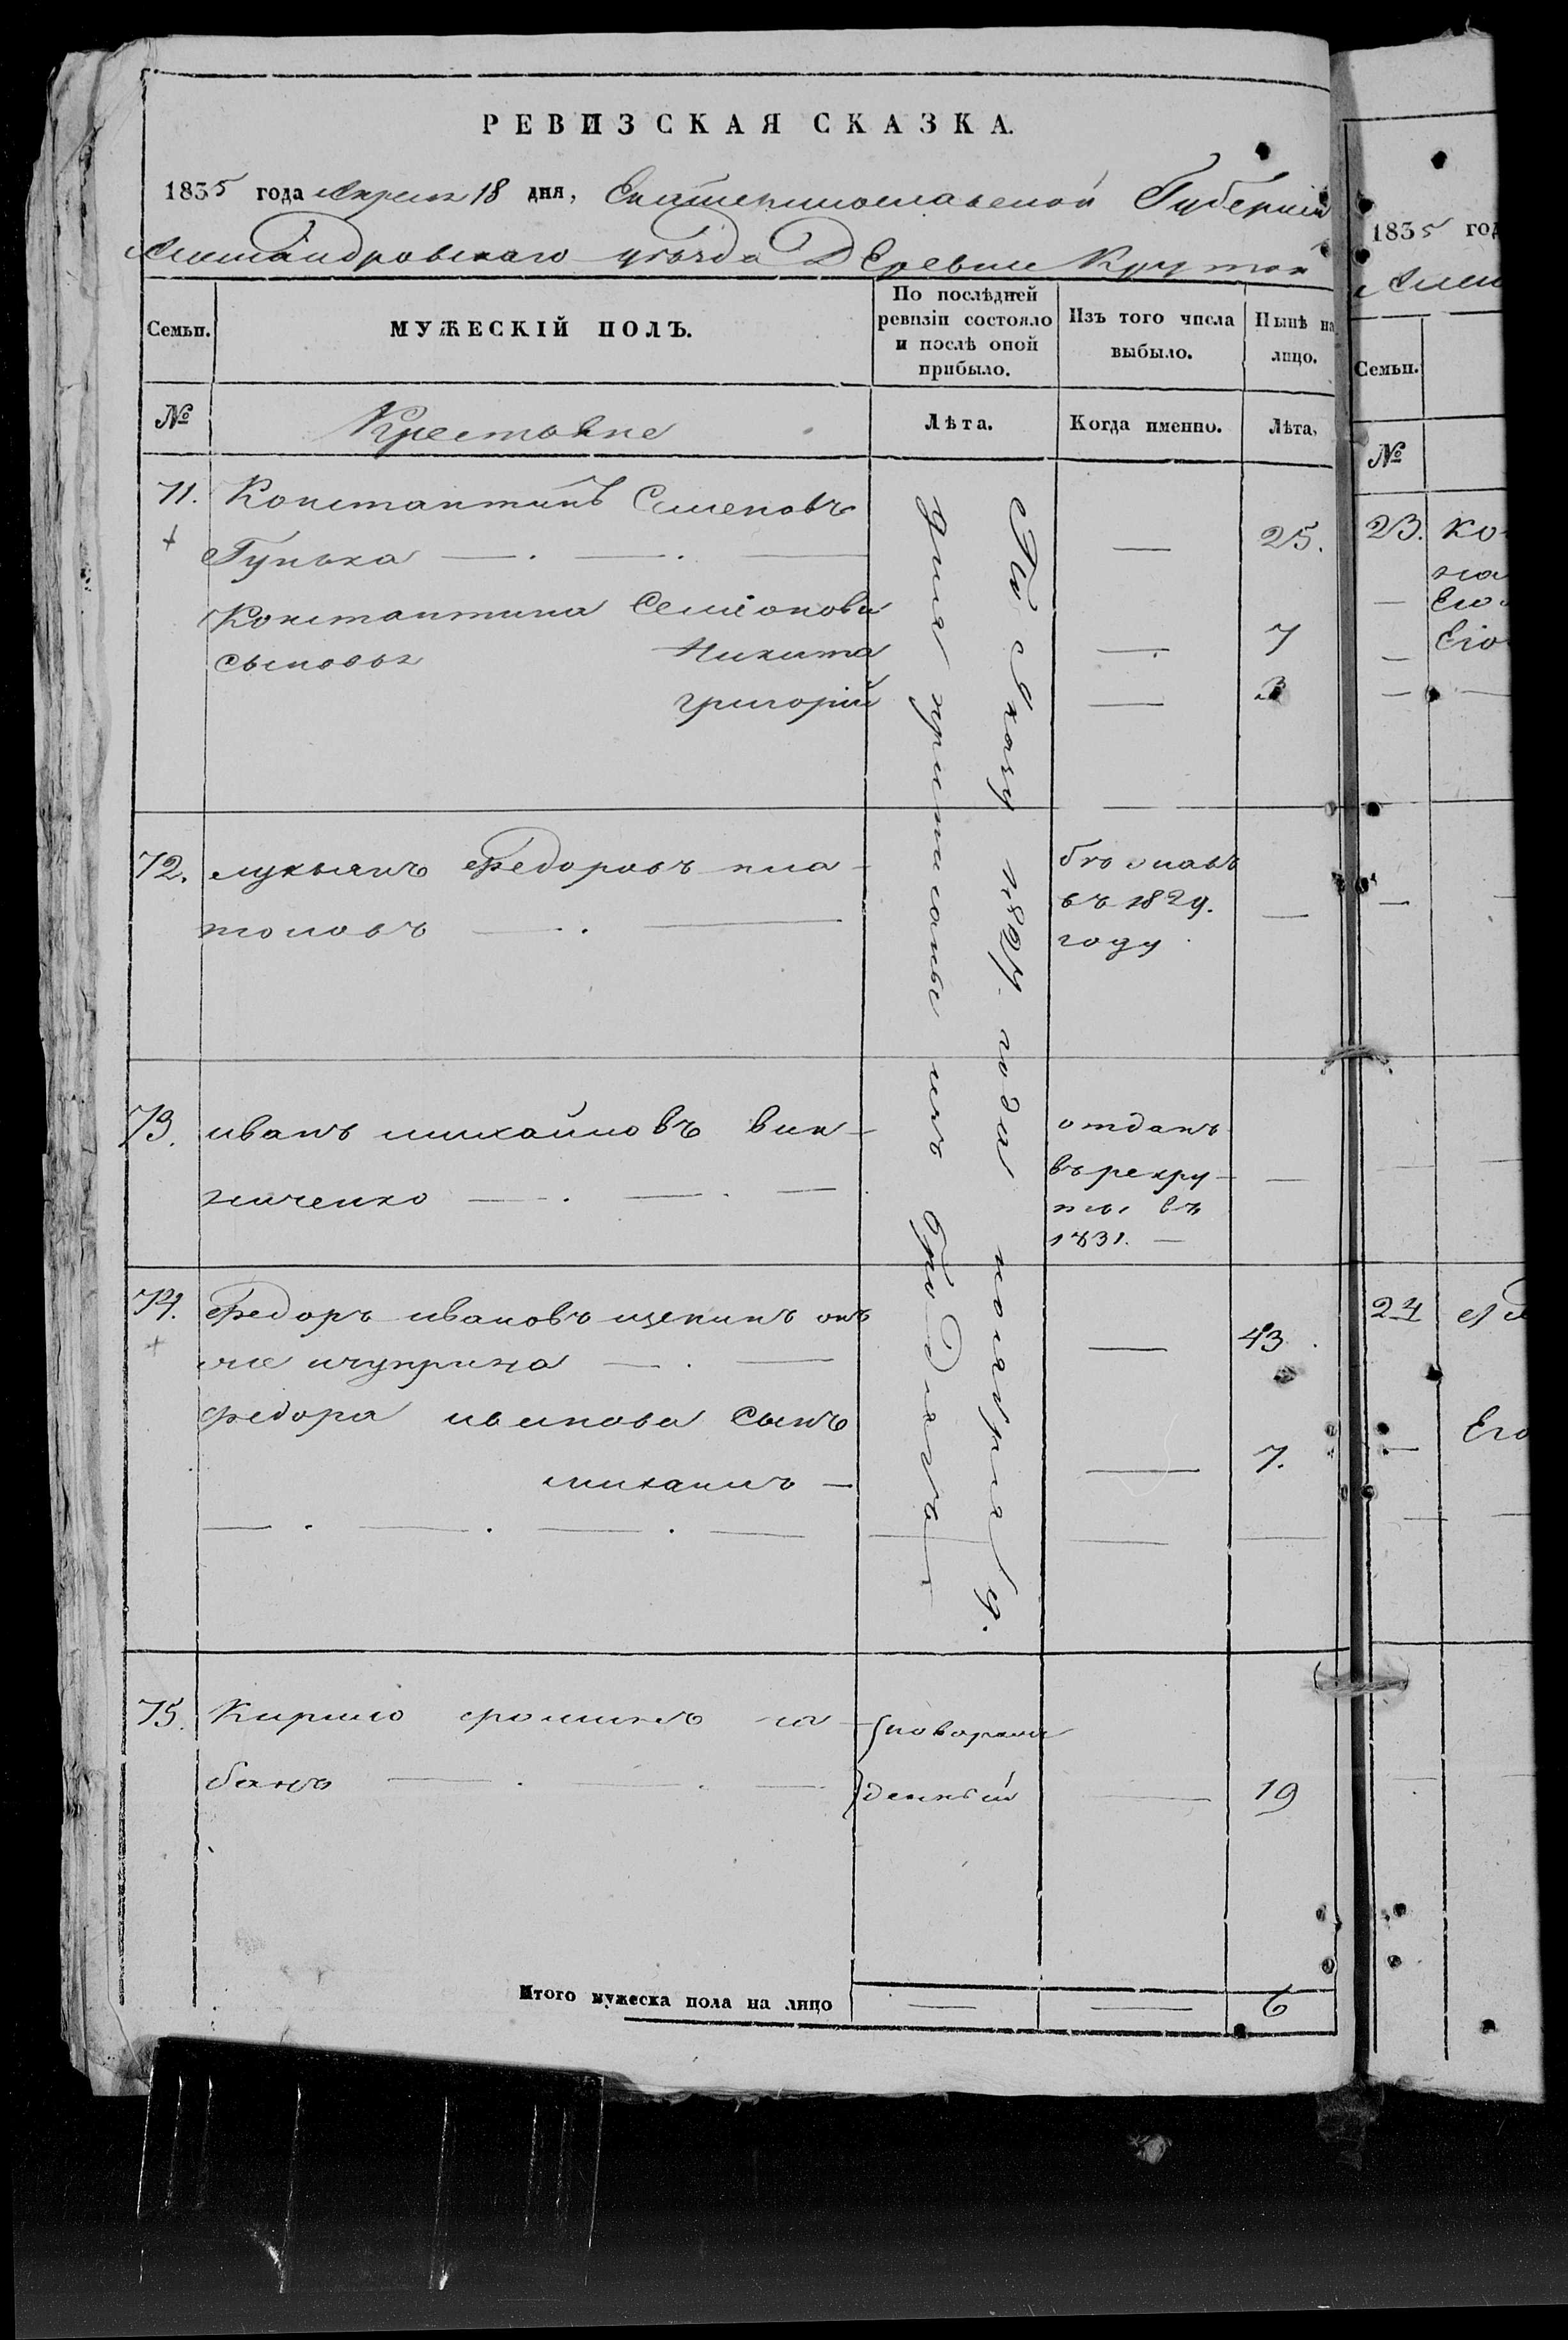 РЕВИЗСКАЯ СКАЗКА.
1835 года Апреля 18 дня, Екатеринославской Губернiи
Александровскаго уѣзда Деревни Крутой
Семьи.
МУЖЕСКIЙ ПОЛЪ.
По послѣдней
ревизiи состояло
и послѣ оной
прибыло.
Изъ того числа
выбыло.
Нынѣ на
лицо.
№
Крестьяне
Лѣта.
Когда именно.
Лѣта,
71. Константинъ Семеновъ
Гунька — 25.
Константина Семіонова
сыновья Никита — 7
григорій — 3
По Указу 1824. года ноября 9.
дня приписаны изъ бродягъ
72. лукьянъ Федоровъ пла-
тоновъ —
бѣжалъ
въ 1829.
году
73. иванъ михайловъ вин-
ниченко —
отданъ
въ рекру-
ты въ
1831.
74. Федоръ ивановъ щепинъ онъ
же чуприна — 43.
федора иванова сынъ
михаилъ — 7.
75. Кирило
банъ — 19
новорож
денный
Итого мужеска пола на лицо — — 6
1835 год
Алек
Семьи.
№
23. Ко
Его
Его
24
Его